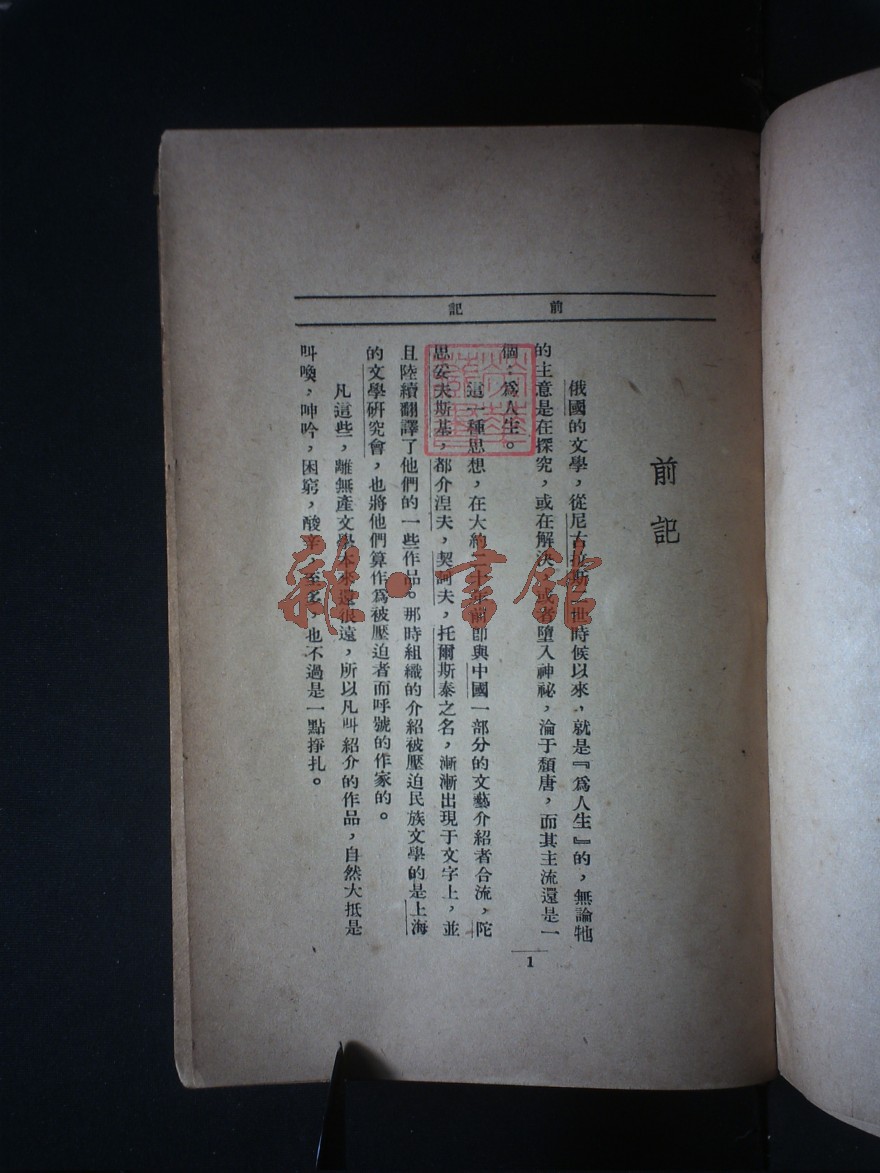 前記
前記
俄國的文學，從尼古拉斯二世時候以來，就是『爲人生』的，無論牠
的主意是在探究，或在解決，或者墮入神祕，淪于頹唐，而其主流還是一
個：爲人生。
這一種思想，在大約二十年前即與中國一部分的文藝介紹者合流，陀
思妥夫斯基，都介涅夫，契訶夫，托爾斯泰之名，漸漸出現于文字上，並
且陸續翻譯了他們的一些作品。那時組織的介紹被壓迫民族文學的是上海
的文學研究會，也將他們算作爲被壓迫者而呼號的作家的。
凡這些，離無產文學本來還很遠，所以凡所紹介的作品，自然大抵是
叫喚，呻吟，困窮，酸辛，至多，也不過是一點掙扎。
1
雜·書館